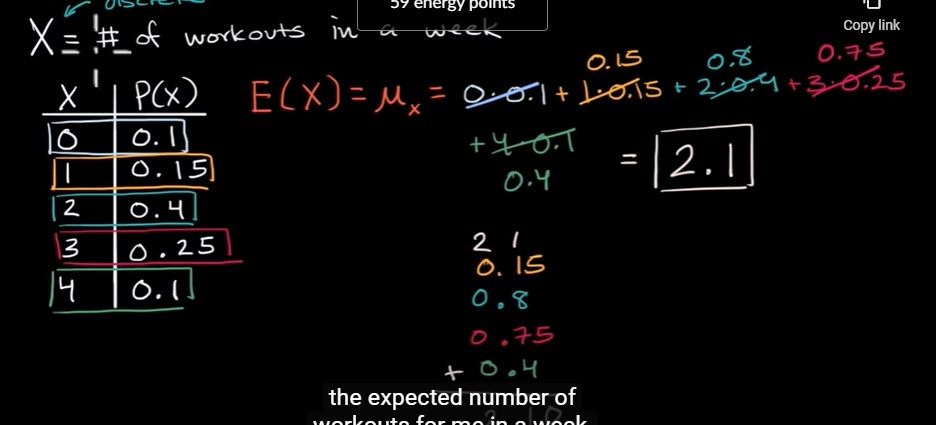 DISCRETE
59 energy points
Copy link
X = # of workouts in a week
X P(X)
0 0.1
1 0.15
2 0.4
3 0.25
4 0.1
0.15 0.8 0.75
E(X) = μx = 0·0.1 + 1·0.15 + 2·0.4 + 3·0.25
+ 4·0.1 = 2.1
0.4
2 1
0.15
0.8
0.75
+ 0.4
2.10
the expected number of
workouts for me in a week